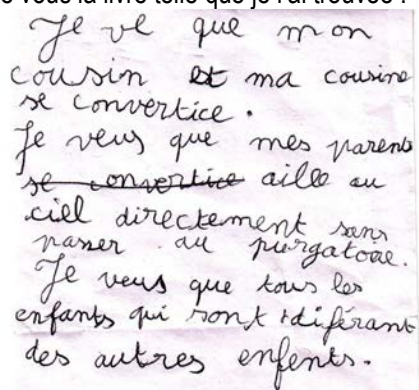 vous la livre telle que je l'ai trouvée :
Je vl que mon
cousin et ma cousine
se convertice.
Je veus que mes parents
se convertice aille au
ciel directement sans
passer au purgatoire.
Je veus que tous les
enfants qui sont diférant
des autres enfents.